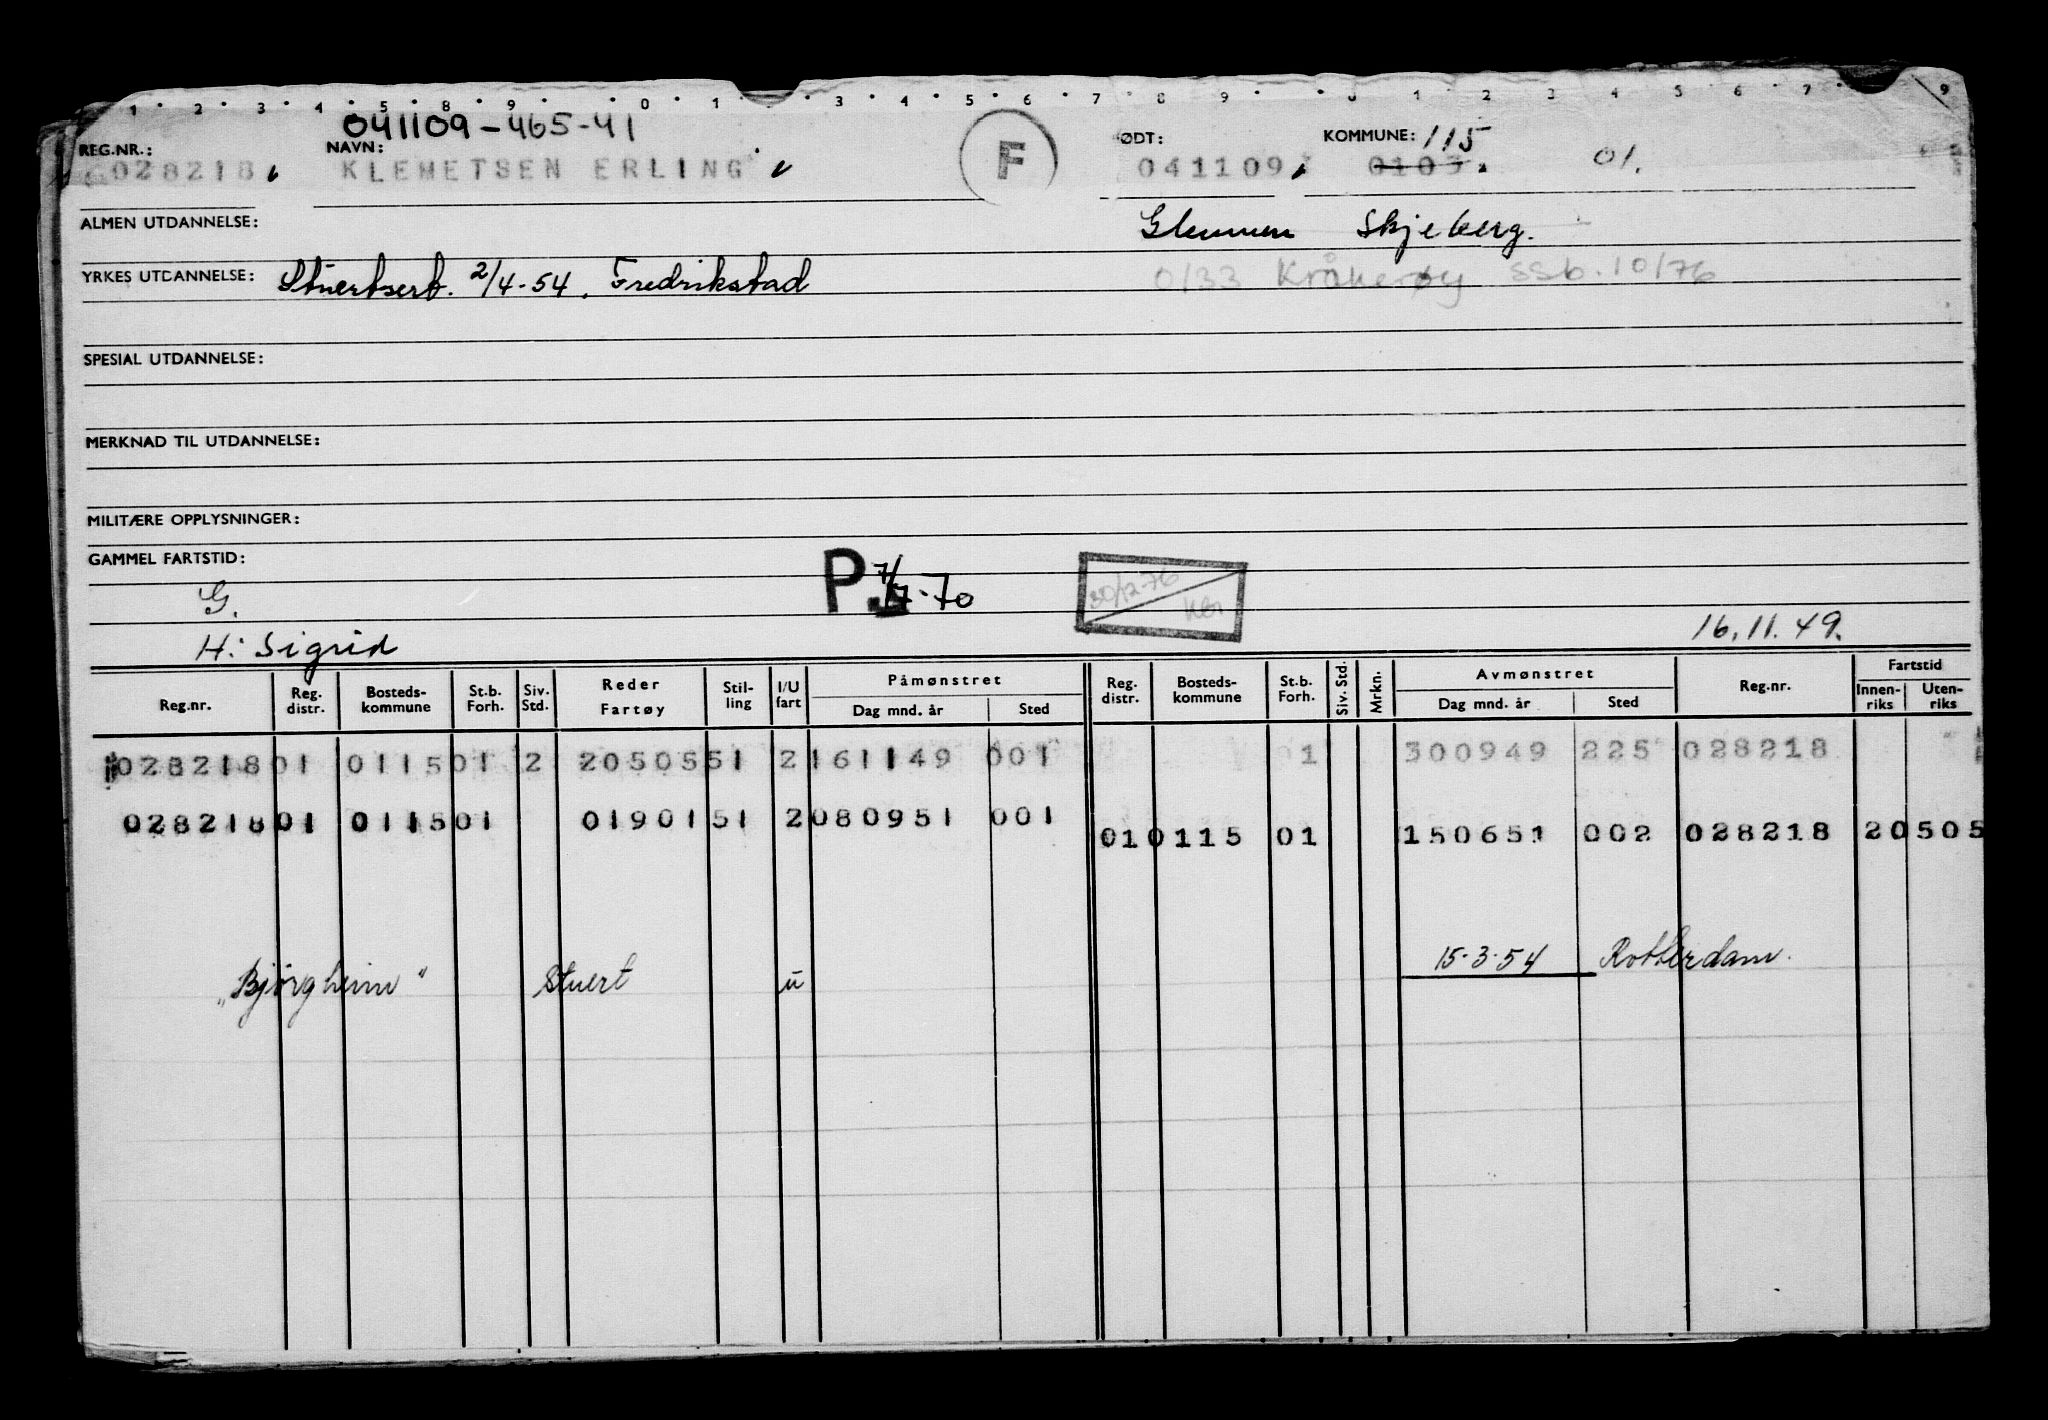 1 2 3 4 5 8 9 0 1 3 4 5 6 7 8 9 1 2 3 4 5 6 7 9
041109-465-41
REG.NR.: NAVN: F ØDT: KOMMUNE: 115
028218 KLEMETSEN ERLING 041109 0103 01.
ALMEN UTDANNELSE: Glemmen Skjeberg.
YRKES UTDANNELSE: Stuertsert. 2/4-54. Fredrikstad 0133 Kråkerøy SSb. 10/76
SPESIAL UTDANNELSE:
MERKNAD TIL UTDANNELSE:
MILITÆRE OPPLYSNINGER:
GAMMEL FARTSTID:
G. P. 7/7-70 30/12-76
16.11.49.
H: Sigrid
Reg.nr. Reg. distr. Bosteds-kommune St.b. Forh. Siv. Std. Reder Fartøy Stil-ling I/U fart Påmønstret Dag mnd. år Sted Reg. distr. Bosteds-kommune St.b. Forh. Siv. Std. Mrkn. Avmønstret Dag mnd. år Sted Reg.nr. Fartstid Innen-riks Uten-riks
028218 01 0115 01 2 20505 51 2 161149 001 1 300949 225 028218
028218 01 0115 01 01901 51 2 080951 001 01 0115 01 150651 002 028218 20505
"Bjørgheim" Stuert u 15-3-54 Rotterdam.